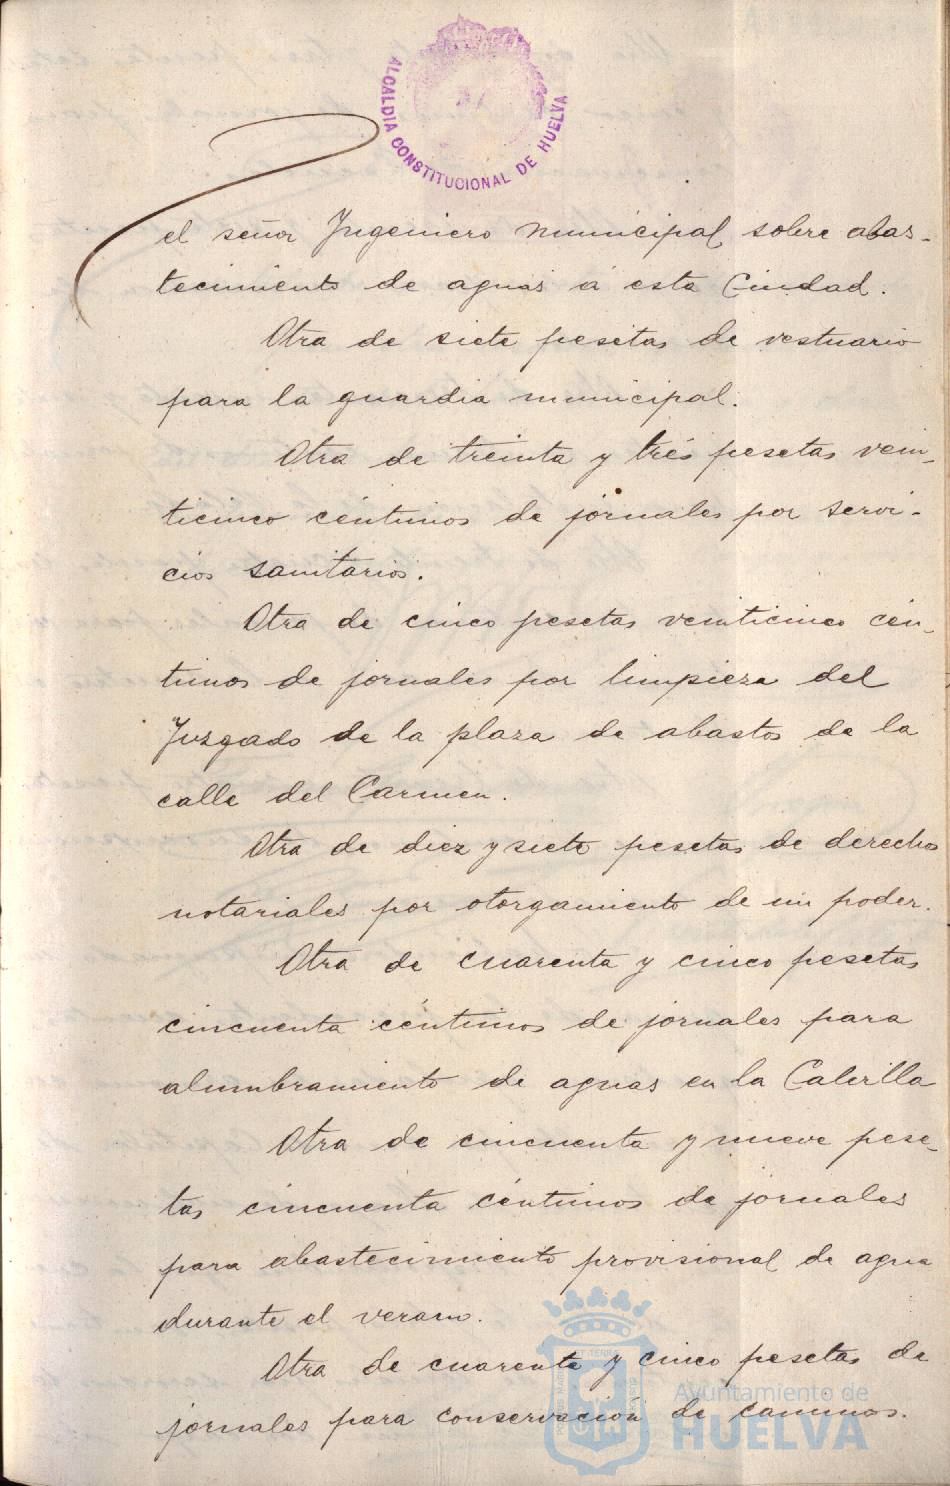 ALCALDIA CONSTITUCIONAL DE HUELVA
el señor Ingeniero municipal sobre abas-
tecimiento de aguas á esta Ciudad.
Otra de siete pesetas de vestuario
para la guardia municipal.
Otra de treinta y trés pesetas vein-
ticinco céntimos de jornales por servi-
cios sanitarios.
Otra de cinco pesetas veinticinco cén-
timos de jornales por limpieza del
Juzgado de la plaza de abastos de la
calle del Carmen.
Otra de diez y siete pesetas de derechos
notariales por otorgamiento de un poder.
Otra de cuarenta y cinco pesetas
cincuenta céntimos de jornales para
alumbramiento de aguas en la Calerilla
Otra de cincuenta y nueve pese-
tas cincuenta céntimos de jornales
para abastecimiento provisional de agua
durante el verano.
Otra de cuarenta y cinco pesetas de
jornales para conservación de caminos.
Ayuntamiento de
HUELVA